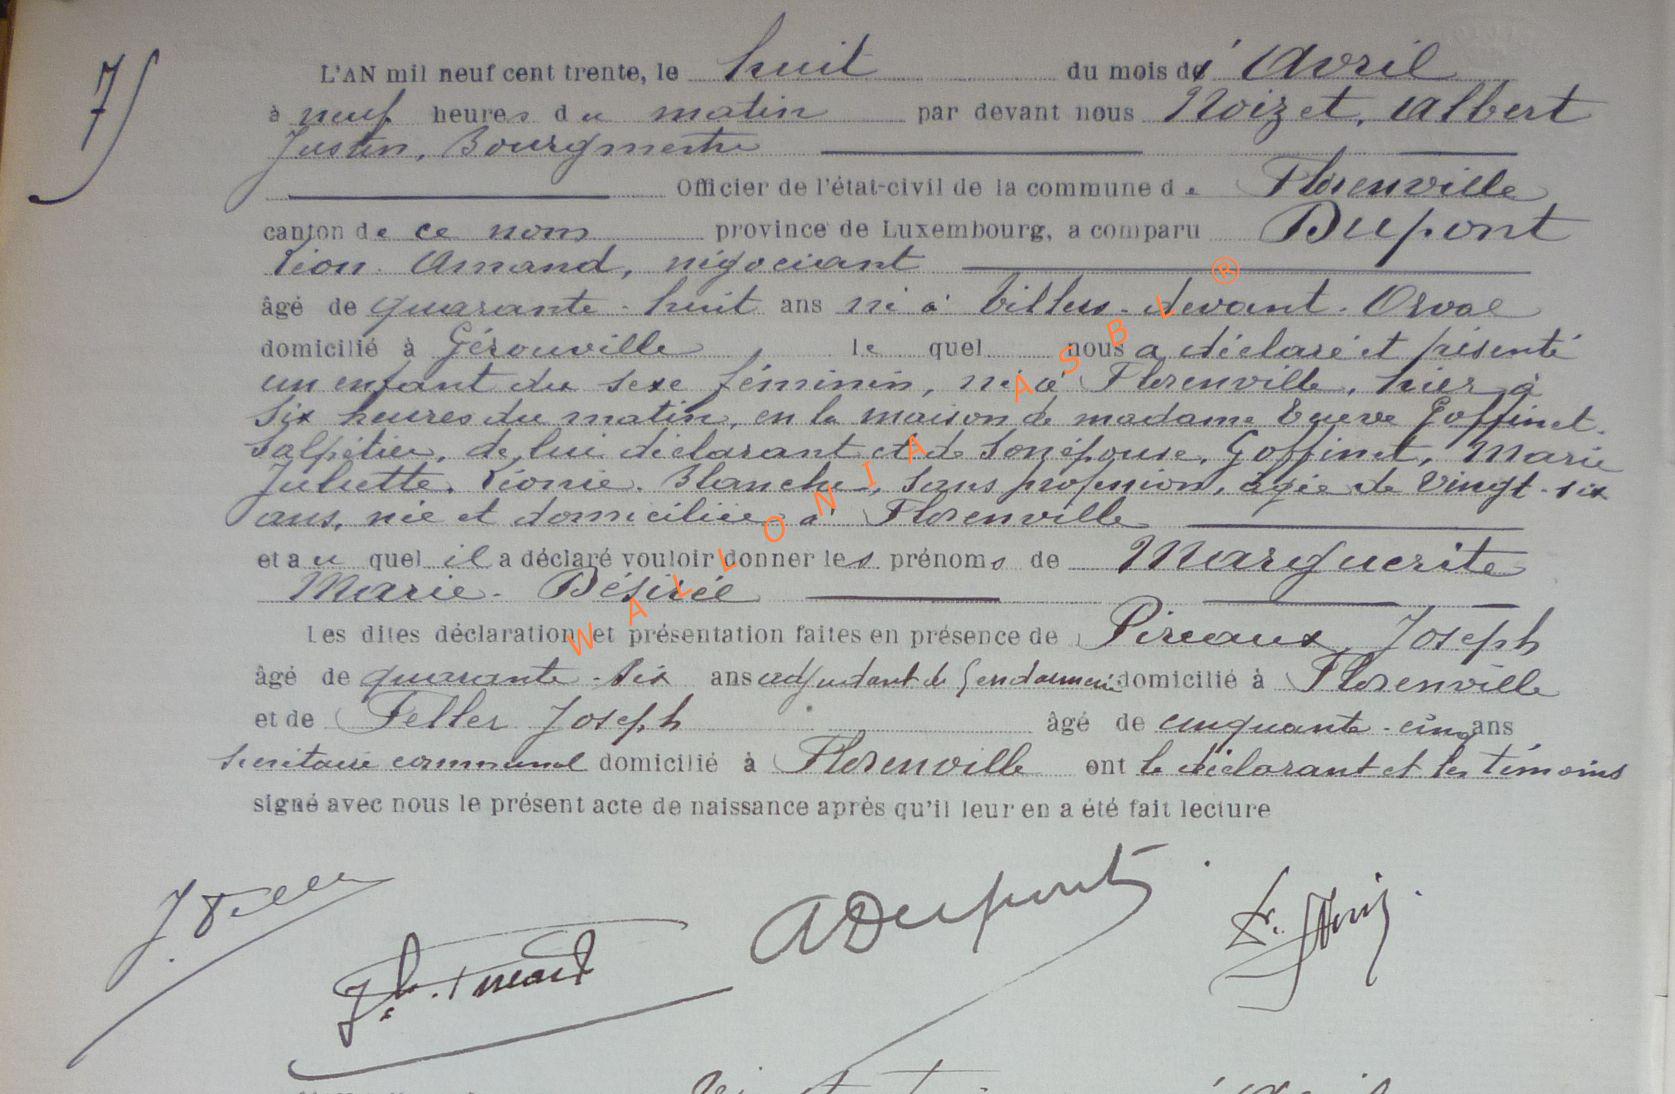 7)
L'AN mil neuf cent trente, le huit du mois d'Avril
à neuf heures du matin par devant nous Noizet, Albert
Justin, Bourgmestre
Officier de l'état-civil de la commune de Florenville
canton de ce nom province de Luxembourg, a comparu Dupont
Léon. Amand, négociant
âgé de quarante-huit ans né à Villers-devant-Orval
domicilié à Gérouville lequel nous a déclaré et présenté
un enfant du sexe féminin, né à Florenville, hier à
six heures du matin, en la maison de madame Veuve Goffinet-
Salpétier, de lui déclarant et de son épouse, Goffinet, Marie
Juliette. Léonie. Blanche, sans profession, âgée de vingt-six
ans, née et domiciliée à Florenville
et au quel il a déclaré vouloir donner les prénoms de Marguerite
Marie-Désirée
Les dites déclaration et présentation faites en présence de Pireaux Joseph
âgé de quarante-six ans adjudant de Gendarmerie domicilié à Florenville
et de Feller Joseph âgé de cinquante-cinq ans
secrétaire communal domicilié à Florenville ont le déclarant et les témoins
signé avec nous le présent acte de naissance après qu'il leur en a été fait lecture
J. Feller
ADupont
WALLONIA ASBL ®